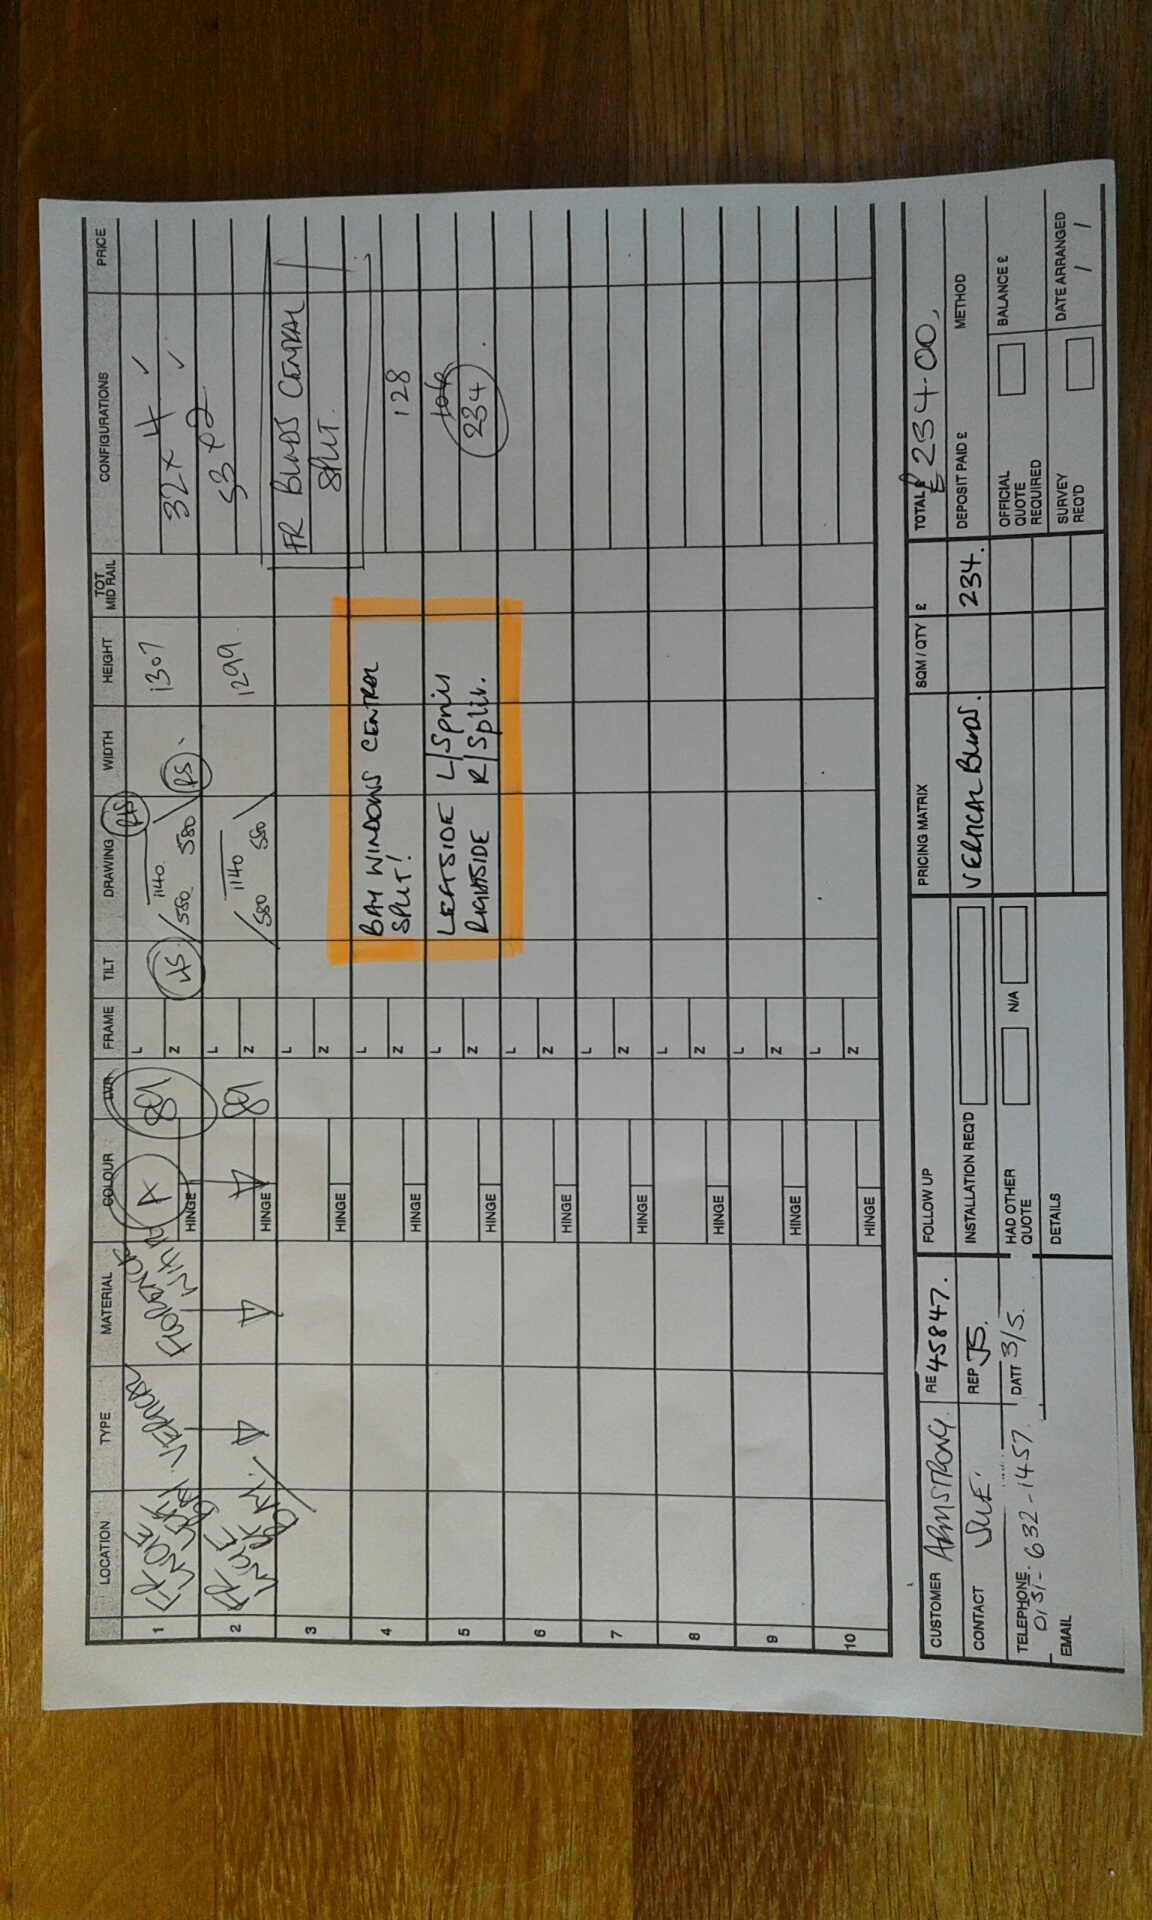 LOCATION TYPE MATERIAL COLOUR LVR FRAME TILT DRAWING WIDTH HEIGHT TOT MID RAIL CONFIGURATIONS PRICE
1 FR VERTICAL FLORENCE A 89 L 1307
BAY WHITE HINGE Z LS /580 1140 580\ RS 32x4 ✓
2 FR 89 L 1299 53x2 ✓
BAY HINGE Z /580 1140 580\
3 L FR BLINDS CENTRAL
HINGE Z SPLIT.
4 L BAY WINDOWS CENTRAL
HINGE Z SPLIT! 128
5 L LEFTSIDE L/Split 106
HINGE Z RIGHTSIDE R/Split. 234.
6 L
HINGE Z
7 L
HINGE Z
8 L
HINGE Z
9 L
HINGE Z
10 L
HINGE Z
CUSTOMER ARMSTRONG. RE 45847. FOLLOW UP PRICING MATRIX SQM / QTY £ TOTAL £ £234-00,
CONTACT SUE. REP JS. INSTALLATION REQ'D VERTICAL BLINDS. 234. DEPOSIT PAID £ METHOD
TELEPHONE 0151-632-1457. DATE 3/5. HAD OTHER QUOTE N/A OFFICIAL QUOTE REQUIRED BALANCE £
EMAIL DETAILS SURVEY REQ'D DATE ARRANGED / /